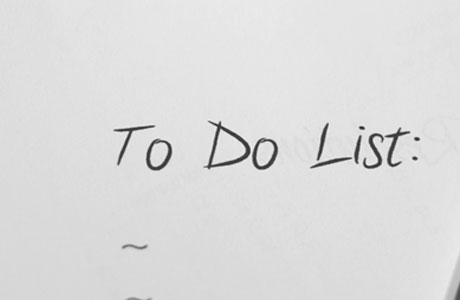 To Do List:
~
~